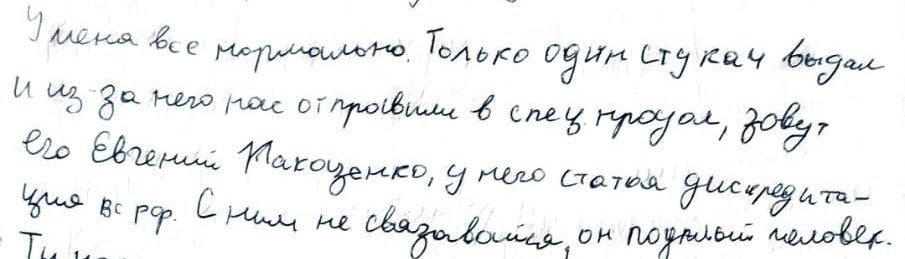 У меня все нормально. Только один стукач выдал
и из-за него нас отправили в спец продол, зовут
его Евгений Макозенко, у него статья дискредита-
ция вс рф. С ним не связавайся, он подлый человек.